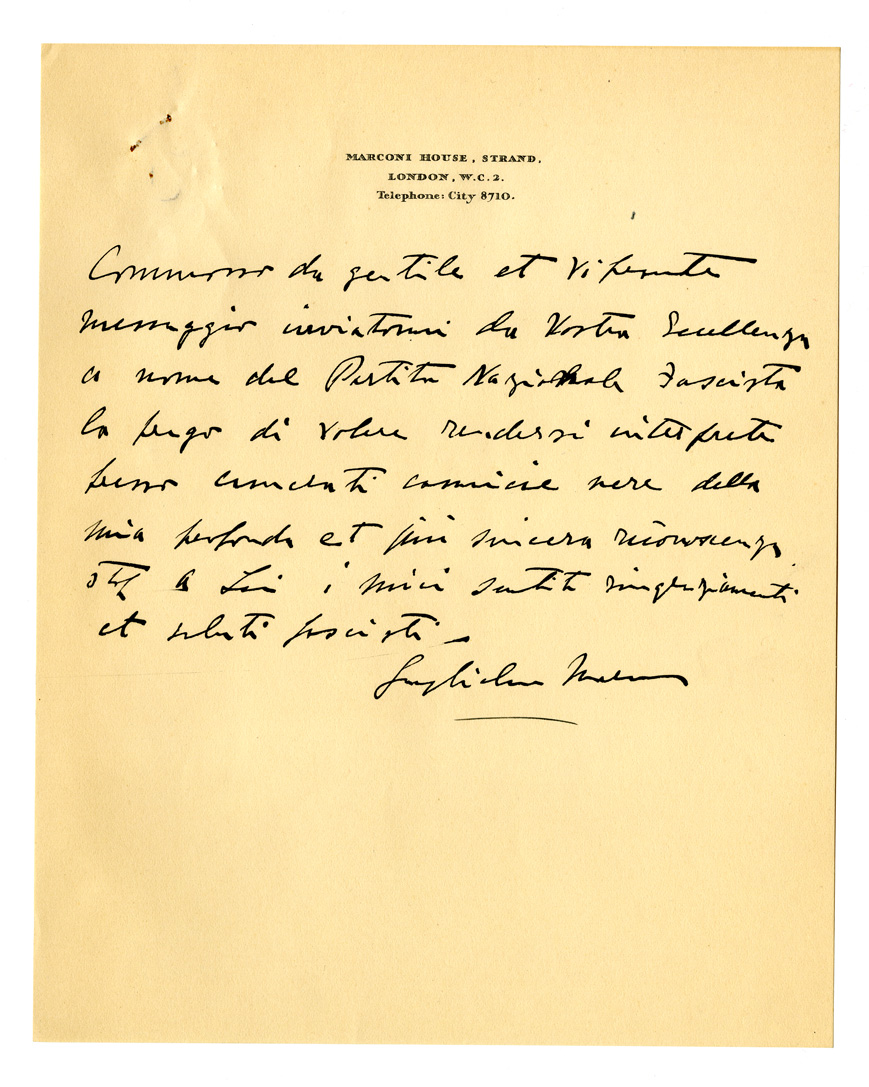 MARCONI HOUSE, STRAND,
LONDON, W.C.2.
Telephone: City 8710.
Commosso da gentile et
messaggio inviatomi da Vostra Eccellenza
a nome del Partito Nazionale Fascista
la prego di volere rendersi interprete
presso camerati camicie nere della
mia profonda et più sincera riconoscenza
a Lei i miei sentiti ringraziamenti
et saluti fascisti
Guglielmo Marconi